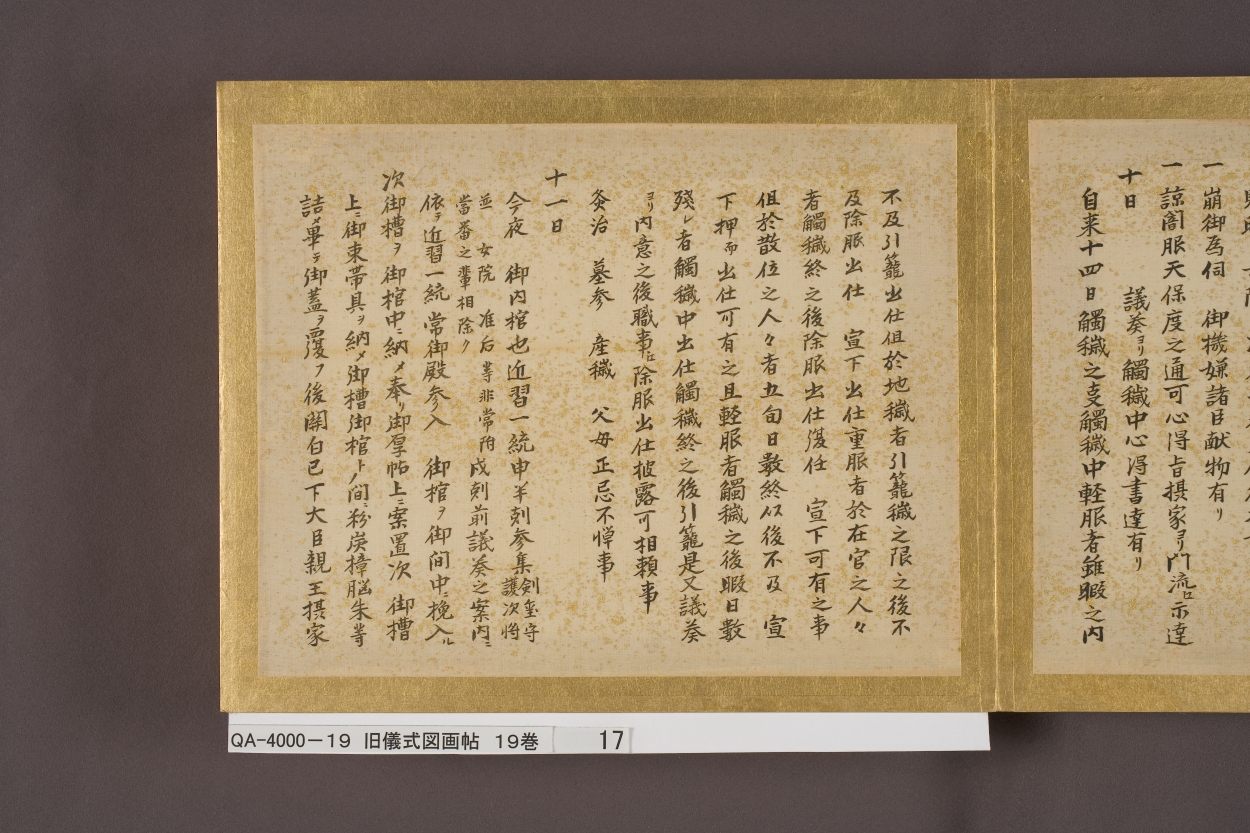 一 崩御為伺 御機嫌諸臣献物有リ
一 諒闇服天保度之通可心得旨摂家ヨリ門流ヱ示達
十日 議奏ヨリ觸穢中心得書達有リ
自来十四日觸穢之㕝觸穢中軽服者雖暇之内
不及引籠出仕但於地穢者引籠穢之限之後不
及除服出仕 宣下出仕重服者於在官之人々
者觸穢終之後除服出仕復任 宣下可有之事
但於散位之人々者五旬日数終以後不及 宣
下押而出仕可有之且軽服者觸穢之後暇日数
残レ者觸穢中出仕觸穢終之後引籠是又議奏
ヨリ内意之後職事ヱ除服出仕披露可相頼事
灸治 墓参 産穢 父母正忌不憚事
十一日
今夜 御内棺也近習一統申半刻参集剣璽守護次将
並 女院 准后等非常附
當番之輩相除ク
戌刻前議奏之案内ニ
依テ近習一統常御殿参入 御棺ヲ御間中ニ挽入ル
次御槽ヲ御棺中ニ納メ奉リ御厚帖上ニ案置次 御槽
上ニ御束帯具ヲ納メ御槽御棺トノ間ニ粉炭樟脳朱等
詰メ畢テ御蓋ヲ覆フ後関白已下大臣親王摂家
QA-4000-19 旧儀式図画帖 19巻 17